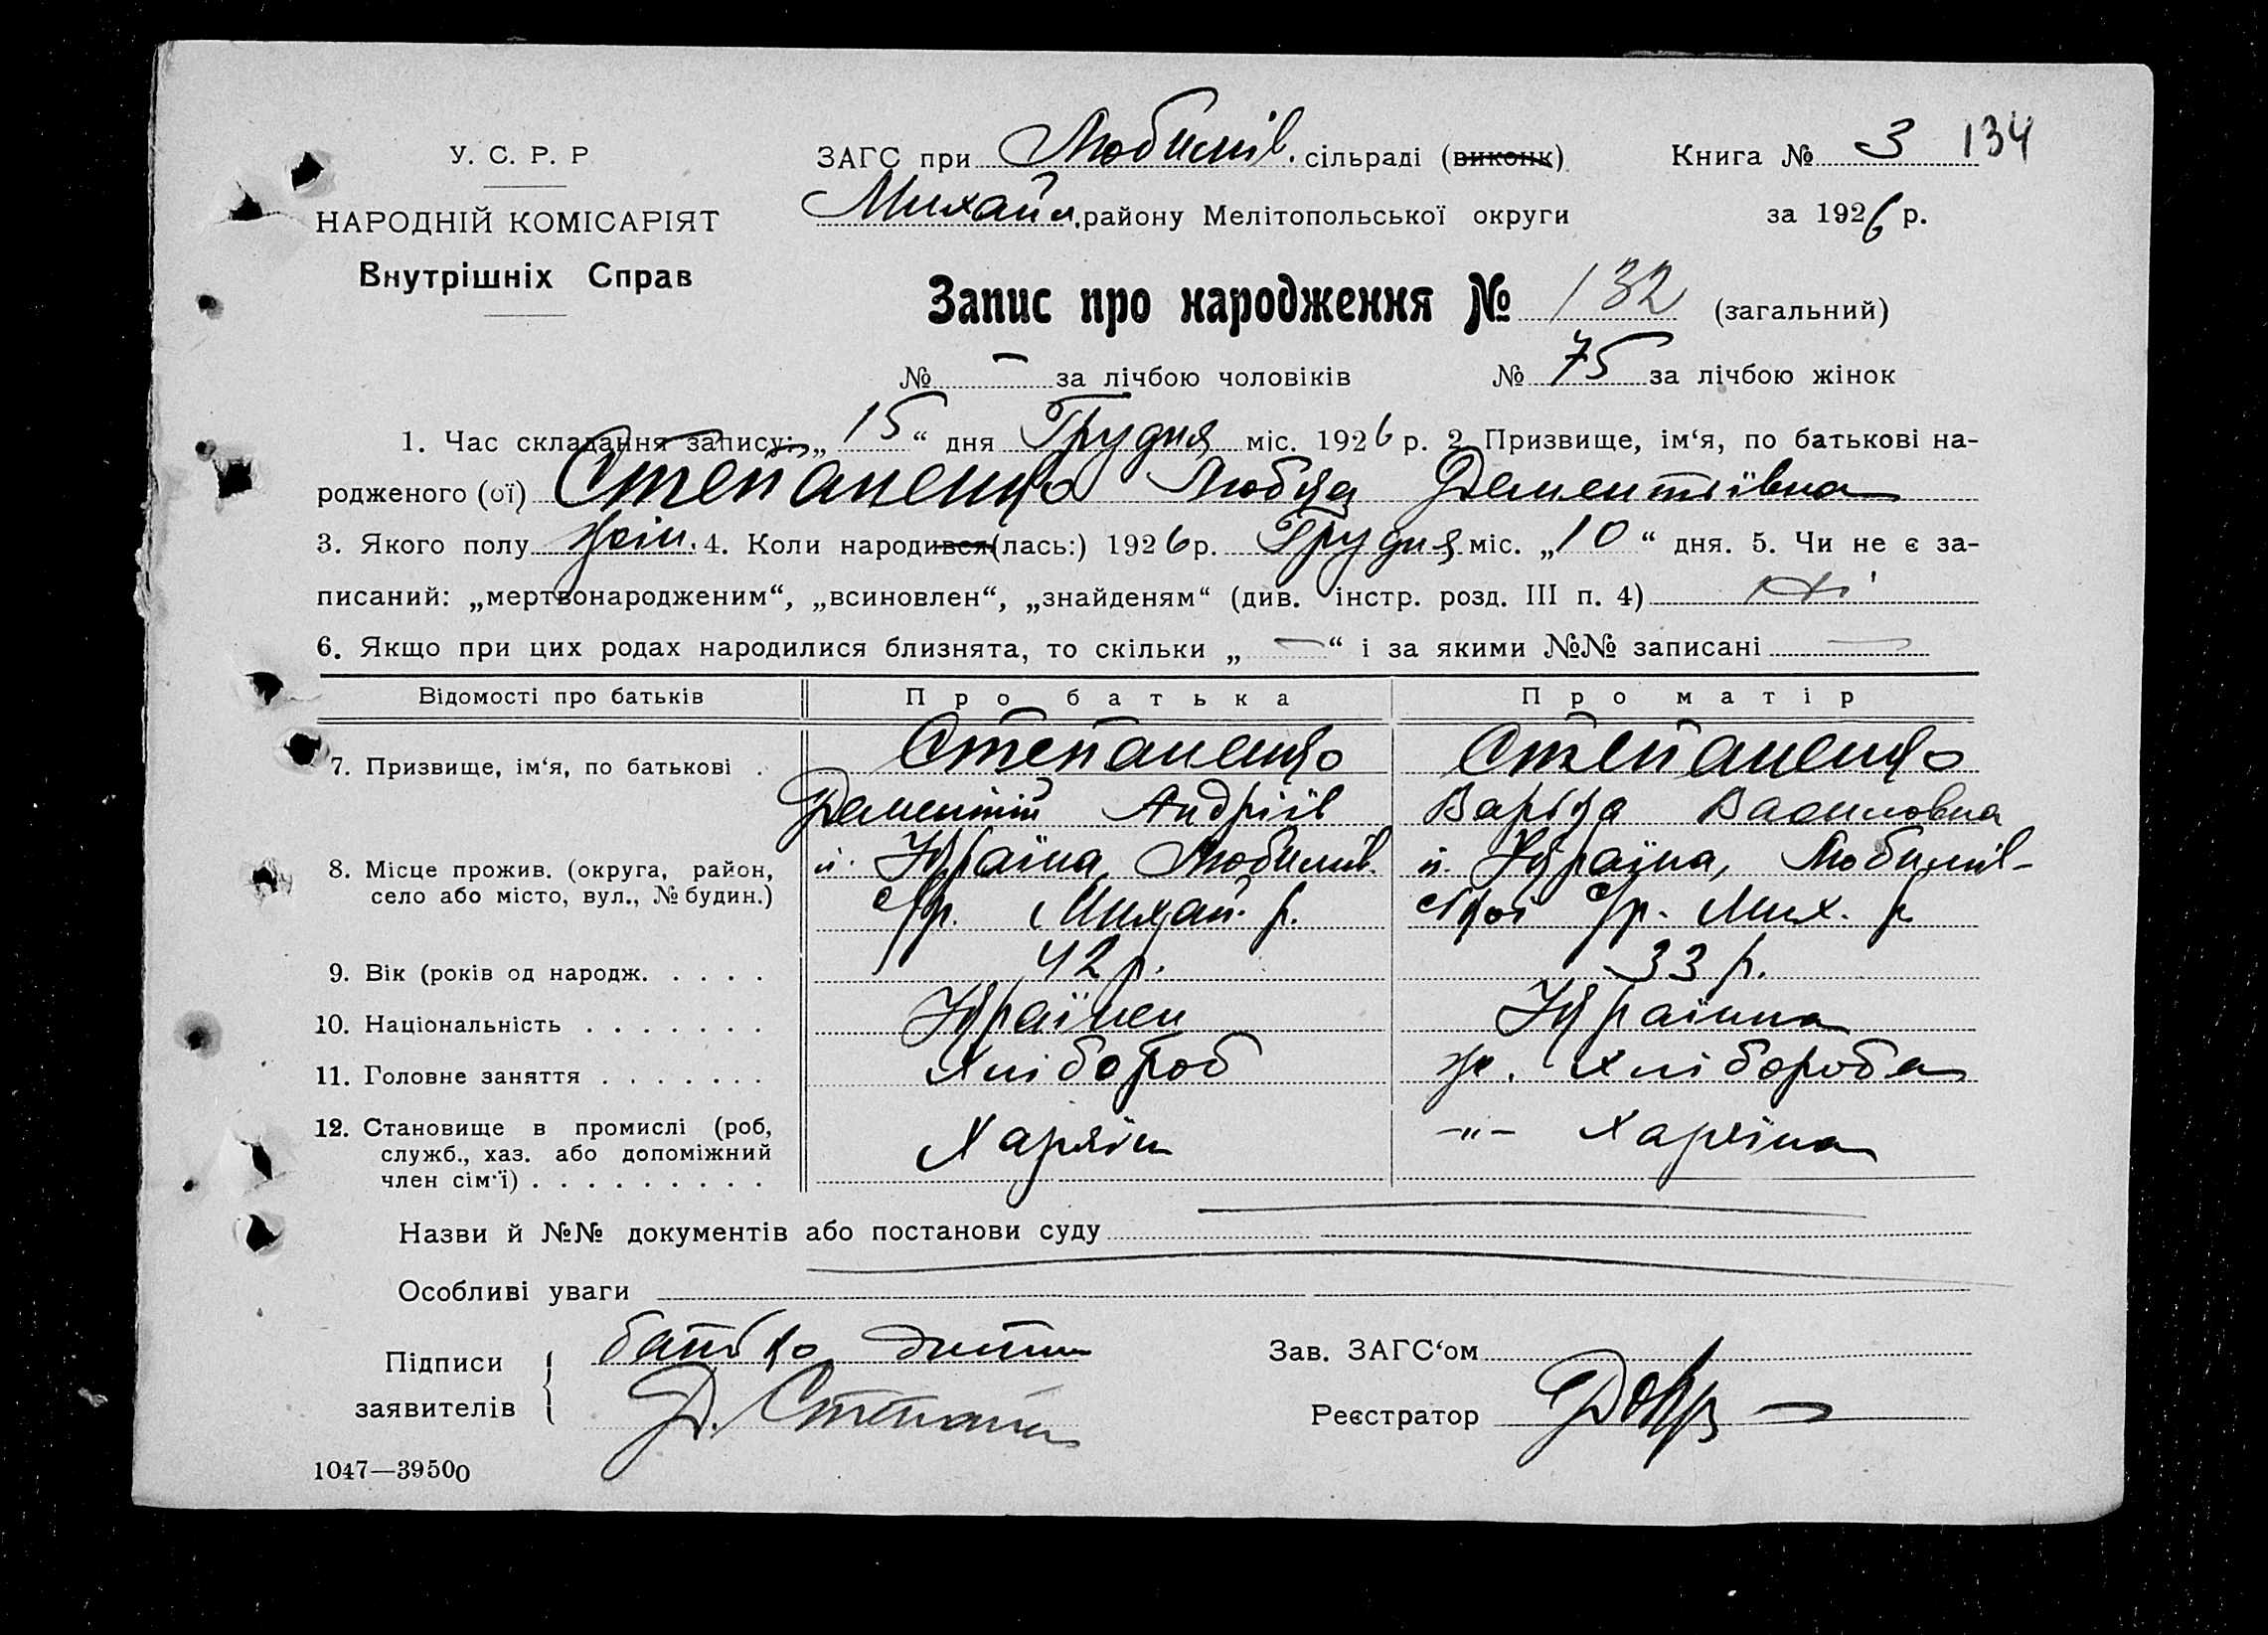 У. С. Р. Р
НАРОДНІЙ КОМІСАРІЯТ
Внутрішніх Справ
ЗАГС при Любимів. сільраді (виконк)
Михайл. району Мелітопольської округи
Книга № 3 134
за 1926 р.
Запис про народження № 132 (загальний)
№ — за лічбою чоловіків № 75 за лічбою жінок
1. Час складання запису: „15“ дня Грудня міс. 1926 р. 2. Призвище, ім‘я, по батькові на-
родженого (ої) Степаненко Любка Дементіївна
3. Якого полу жін. 4. Коли народився (лась:) 1926 р. Грудня міс. „10“ дня. 5. Чи не є за-
писаний: „мертвонародженим“, „всиновлен“, „знайденям“ (див. інстр. розд. III п. 4) ні
6. Якщо при цих родах народилися близнята, то скільки „—“ і за якими №№ записані —
Відомості про батьків Про батька Про матір
7. Призвище, ім‘я, по батькові . Степаненко Степаненко
Дементій Андріїв Варька Василовна
8. Місце прожив. (округа, район, село або місто, вул., № будин.) н. Україна, Любимів. н. Україна, Любимів-
с/р. Михай. р. ської с/р. Мих. р.
9. Вік (років од народж. . . . . 42 р. 33 р.
10. Національність . . . . . . . Українец Українка
11. Головне заняття . . . . . . . Хлібороб ж. хлібороба
12. Становище в промислі (роб, служб., хаз. або допоміжний член сім‘ї) . . . . . . . . . Хазяін -„- Хазяіна
Назви й №№ документів або постанови суду
Особливі уваги
Підписи заявителів батько дитини
Д. Степанен
Зав. ЗАГС‘ом
Реєстратор
1047—39500